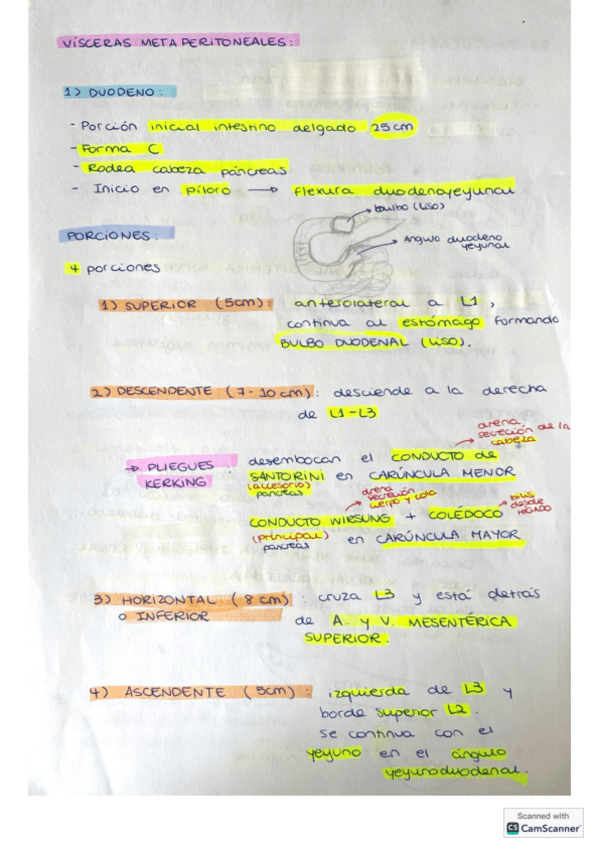 VÍSCERAS METAPERITONEALES:
1) DUODENO:
- Porción inicial intestino delgado 25 cm
- Forma C
- Rodea cabeza páncreas
- Inicio en píloro → flexura duodenoyeyunal
→ bulbo (liso)
PORCIONES:
→ Angulo duodeno
yeyunal
4 porciones
1) SUPERIOR (5cm): anterolateral a L1,
continua al estómago formando
BULBO DUODENAL (liso).
2) DESCENDENTE (7-10 cm): desciende a la derecha
de L1-L3
drena
secreción de la
cabeza
→ PLIEGUES : desembocan el CONDUCTO de
KERKING SANTORINI en CARÚNCULA MENOR
(accesorio)
páncreas
drena
secreción
cuerpo y cola
bilis
desde
HÍGADO
CONDUCTO WIRSUNG + COLÉDOCO
(principal) en CARÚNCULA MAYOR
páncreas
3) HORIZONTAL (8 cm) : cruza L3 y está detrás
o INFERIOR de A. y V. MESENTÉRICA
SUPERIOR.
4) ASCENDENTE (5cm) : izquierda de L3 y
borde superior L2.
Se continua con el
yeyuno en el ángulo
yeyunoduodenal.
Scanned with
CS CamScanner